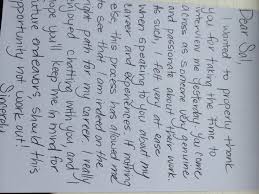 Dear Sal,
I wanted to properly thank
you for taking the time to
interview me yesterday. You came
across as someone very genuine
and passionate about their work.
As such, I felt very at ease
when speaking to you about my
career and experiences. If nothing
else, this process has allowed me
to see that I am indeed on the
right path for my career. I really
enjoyed chatting with you, and I
hope you'll keep me in mind for
future endeavors, should this
opportunity not work out!
Sincerely